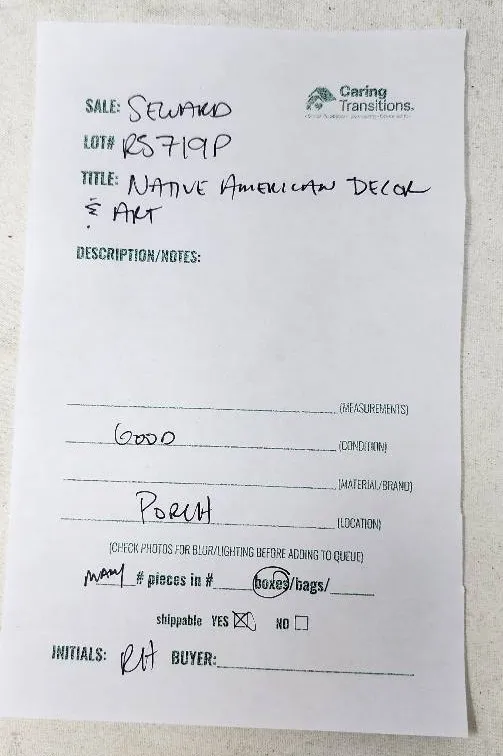 Caring
Transitions.
SALE: SEWARD
LOT# RS719P
TITLE: NATIVE AMERICAN DECOR
& ART
DESCRIPTION/NOTES:
(MEASUREMENTS)
GOOD (CONDITION)
(MATERIAL/BRAND)
PORCH (LOCATION)
(CHECK PHOTOS FOR BLUR/LIGHTING BEFORE ADDING TO QUEUE)
MANY # pieces in # boxes/bags/
shippable YES NO
INITIALS: RH BUYER: